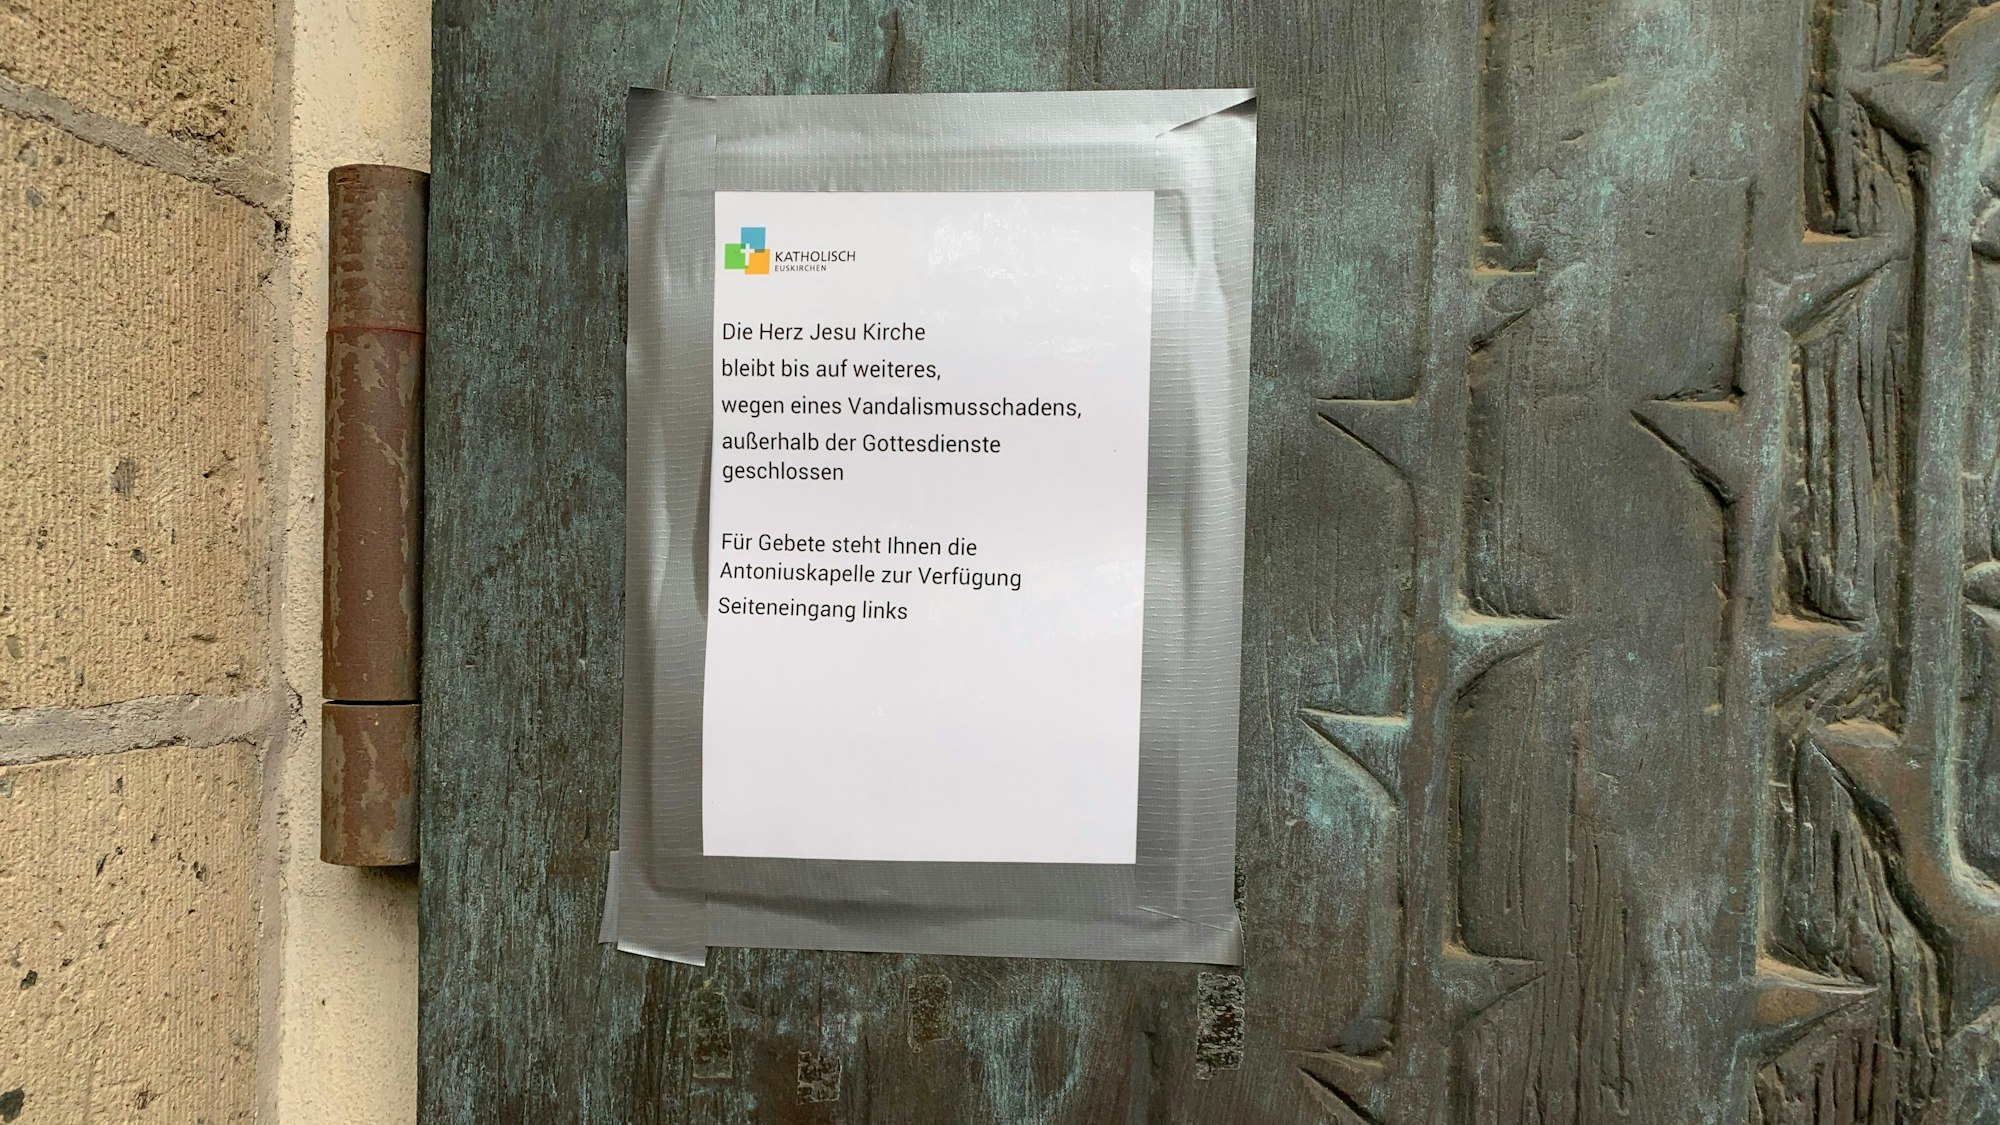 KATHOLISCH
EUSKIRCHEN
Die Herz Jesu Kirche
bleibt bis auf weiteres,
wegen eines Vandalismusschadens,
außerhalb der Gottesdienste
geschlossen
Für Gebete steht Ihnen die
Antoniuskapelle zur Verfügung
Seiteneingang links